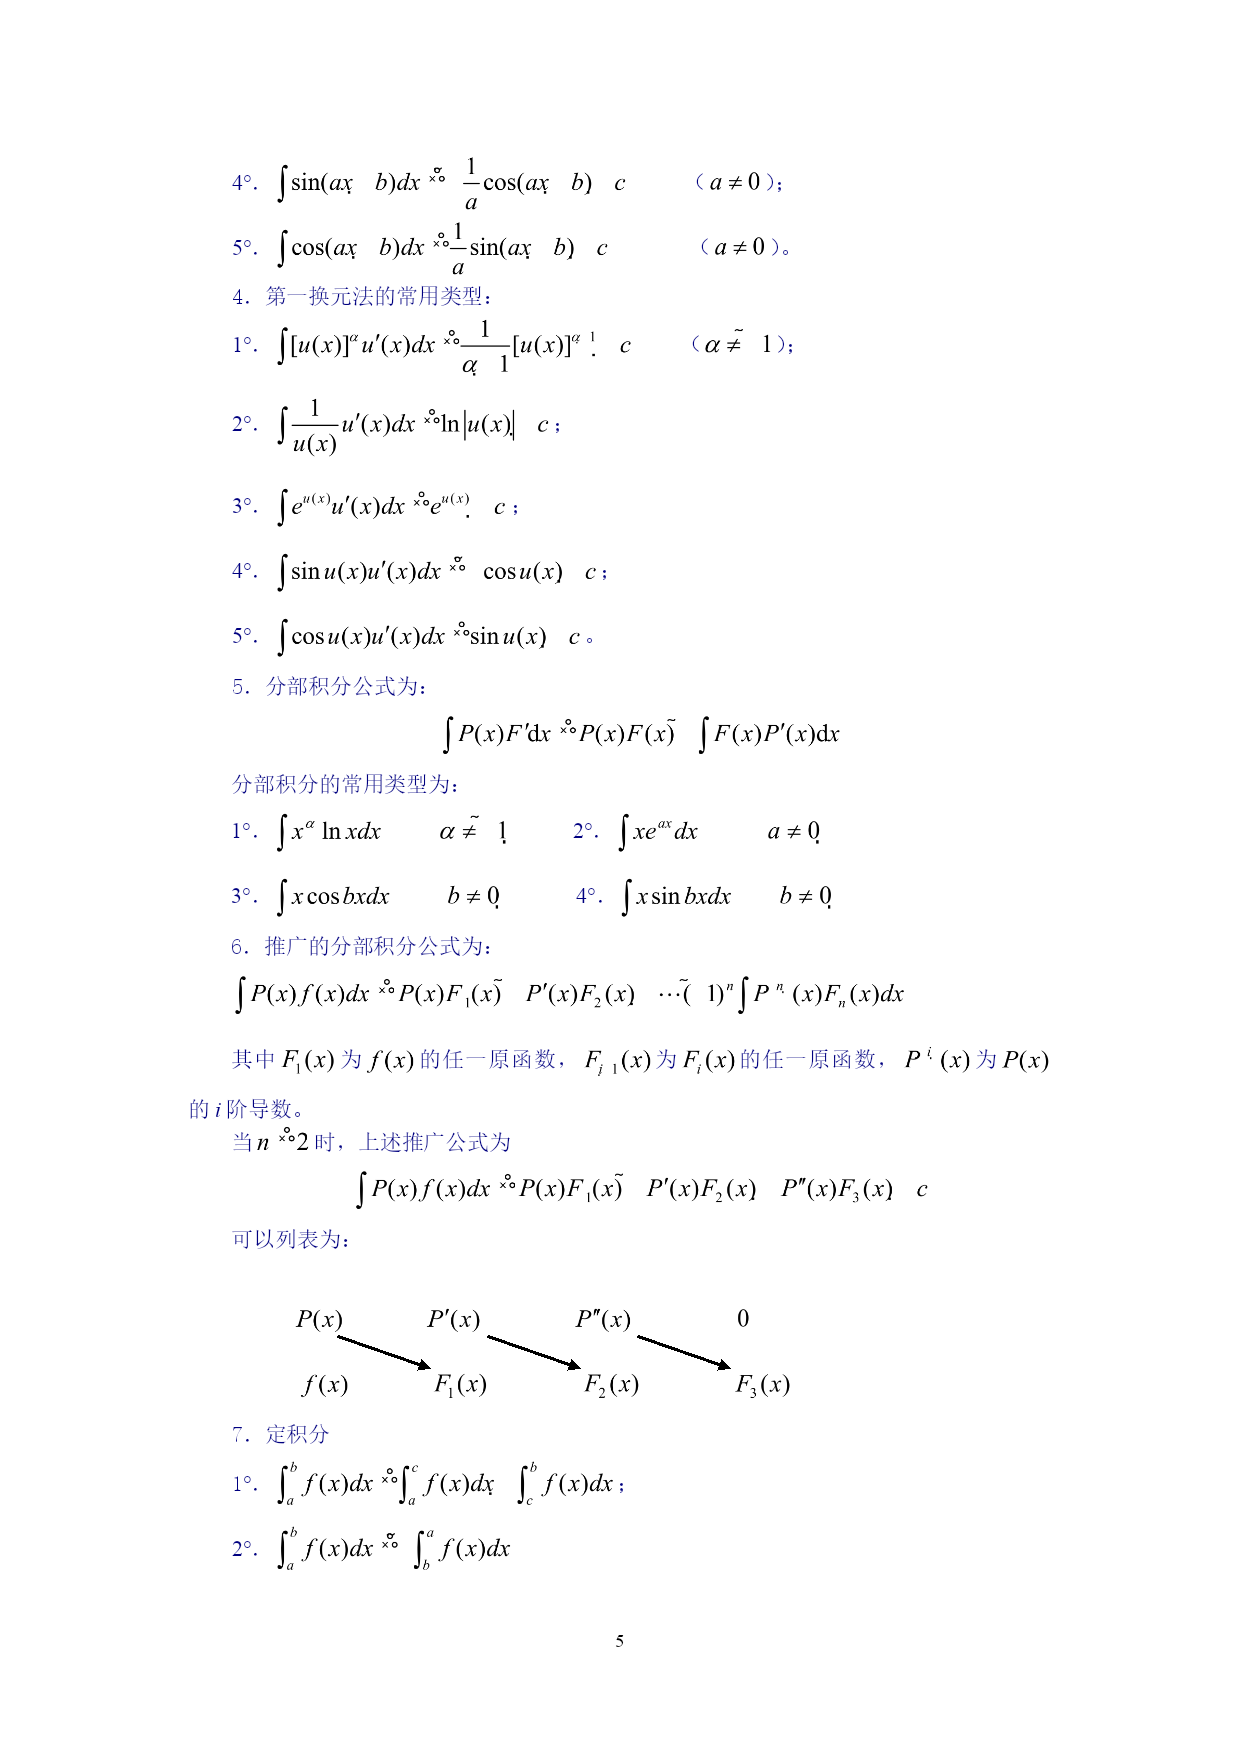 4°. ∫sin(ax b)dx 1/a cos(ax b) c （a≠0）;
5°. ∫cos(ax b)dx 1/a sin(ax b) c （a≠0）。
4. 第一换元法的常用类型:
1°. ∫[u(x)]^α u′(x)dx 1/(α 1) [u(x)]^(α 1) c （α≠ ~ 1）;
2°. ∫1/u(x) u′(x)dx ln|u(x)| c；
3°. ∫e^u(x) u′(x)dx e^u(x) c；
4°. ∫sin u(x)u′(x)dx cos u(x) c；
5°. ∫cos u(x)u′(x)dx sin u(x) c。
5. 分部积分公式为:
∫P(x)F′dx P(x)F(x) ~ ∫F(x)P′(x)dx
分部积分的常用类型为:
1°. ∫x^α ln xdx α≠ ~ 1 2°. ∫xe^ax dx a≠0
3°. ∫x cos bxdx b≠0 4°. ∫x sin bxdx b≠0
6. 推广的分部积分公式为:
∫P(x)f(x)dx P(x)F₁(x) ~ P′(x)F₂(x) ⋯( ~ 1)^n ∫P^n (x)Fₙ(x)dx
其中 F₁(x) 为 f(x) 的任一原函数, F_(i 1)(x) 为 F_i(x) 的任一原函数, P^i (x) 为 P(x)
的 i 阶导数。
当 n 2 时, 上述推广公式为
∫P(x)f(x)dx P(x)F₁(x) ~ P′(x)F₂(x) P″(x)F₃(x) c
可以列表为:
P(x) P′(x) P″(x) 0
f(x) F₁(x) F₂(x) F₃(x)
7. 定积分
1°. ∫_a^b f(x)dx ∫_a^c f(x)dx ∫_c^b f(x)dx；
2°. ∫_a^b f(x)dx ∫_b^a f(x)dx
5